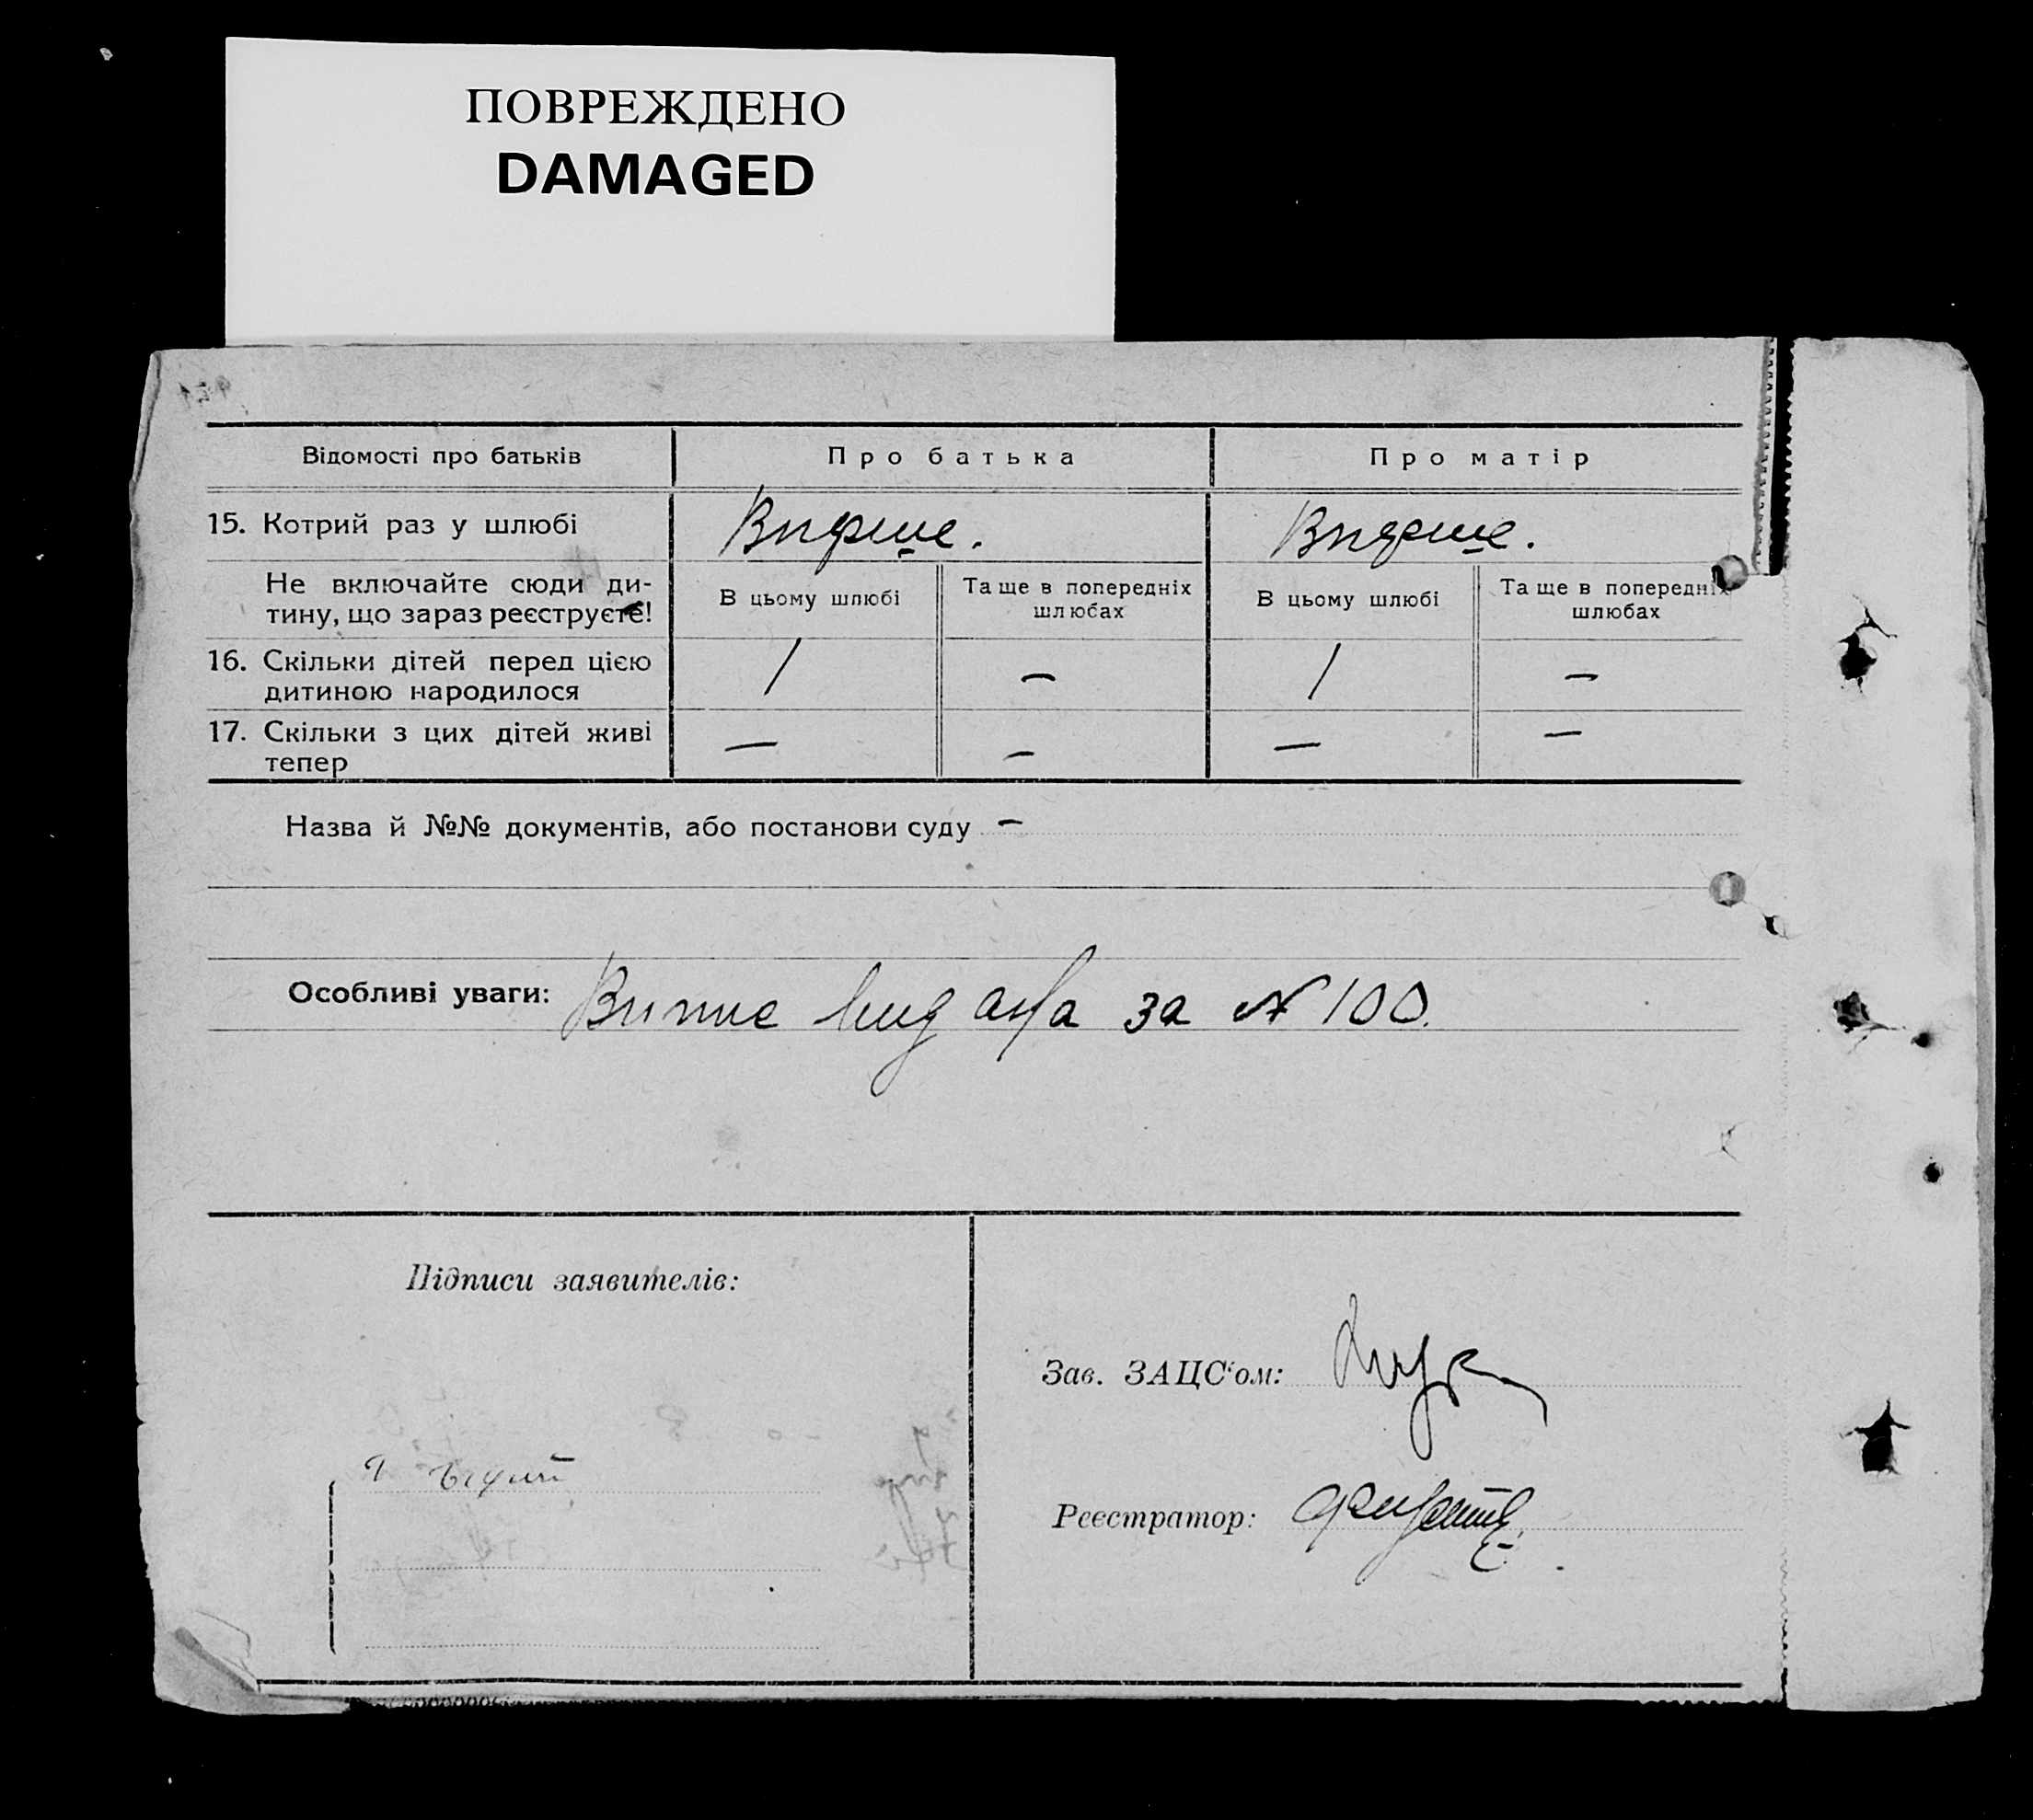 ПОВРЕЖДЕНО
DAMAGED
Відомості про батьків
Про батька
Про матір
15. Котрий раз у шлюбі
Вперше.
Вперше.
Не включайте сюди ди-
тину, що зараз реєструєте!
В цьому шлюбі
Та ще в попередніх
шлюбах
В цьому шлюбі
Та ще в попередніх
шлюбах
16. Скільки дітей перед цією
дитиною народилося
1
—
1
—
17. Скільки з цих дітей живі
тепер
—
—
—
—
Назва й №№ документів, або постанови суду —
Особливі уваги: Випис видана за № 100.
Підписи заявителів:
Зав. ЗАЦС'ом:
Реєстратор: